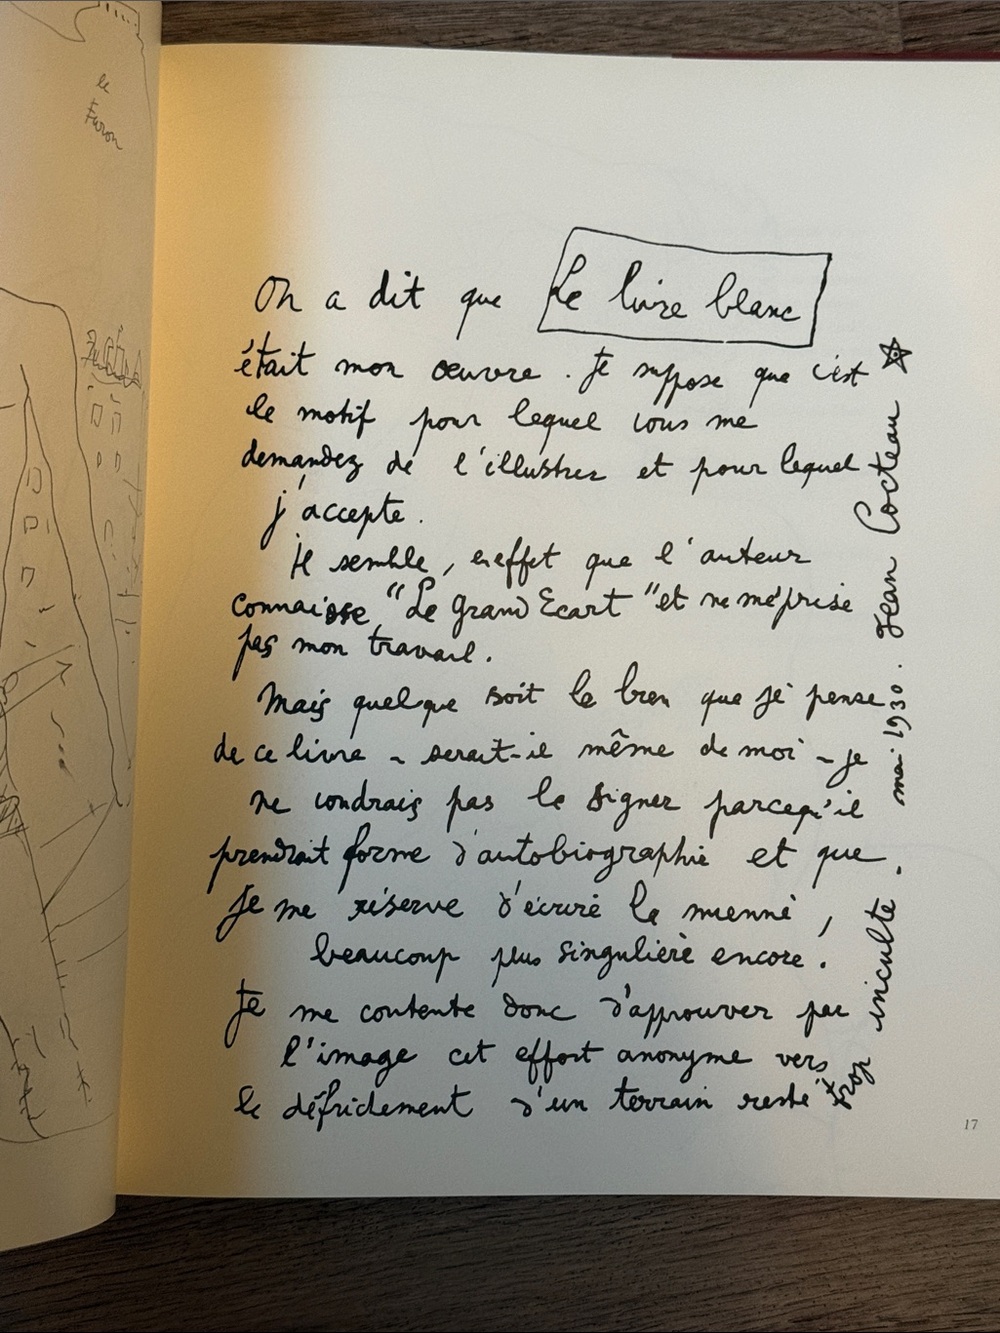 le
Furon
On a dit que Le livre blanc
était mon oeuvre. Je suppose que c'est
le motif pour lequel vous me
demandez de l'illustrer et pour lequel
j'accepte.
Il semble, en effet que l'auteur
connaisse "Le Grand Ecart" et ne méprise
pas mon travail.
Mais quelque soit le bien que je pense
de ce livre - serait-il même de moi - je
ne voudrais pas le signer parcequ'il
prendrait forme d'autobiographie et que
je me réserve d'écrire la mienne,
beaucoup plus singulière encore.
Je me contente donc d'approuver par
l'image cet effort anonyme vers
le défrichement d'un terrain resté
trop inculte. mai 1930. Jean Cocteau
17